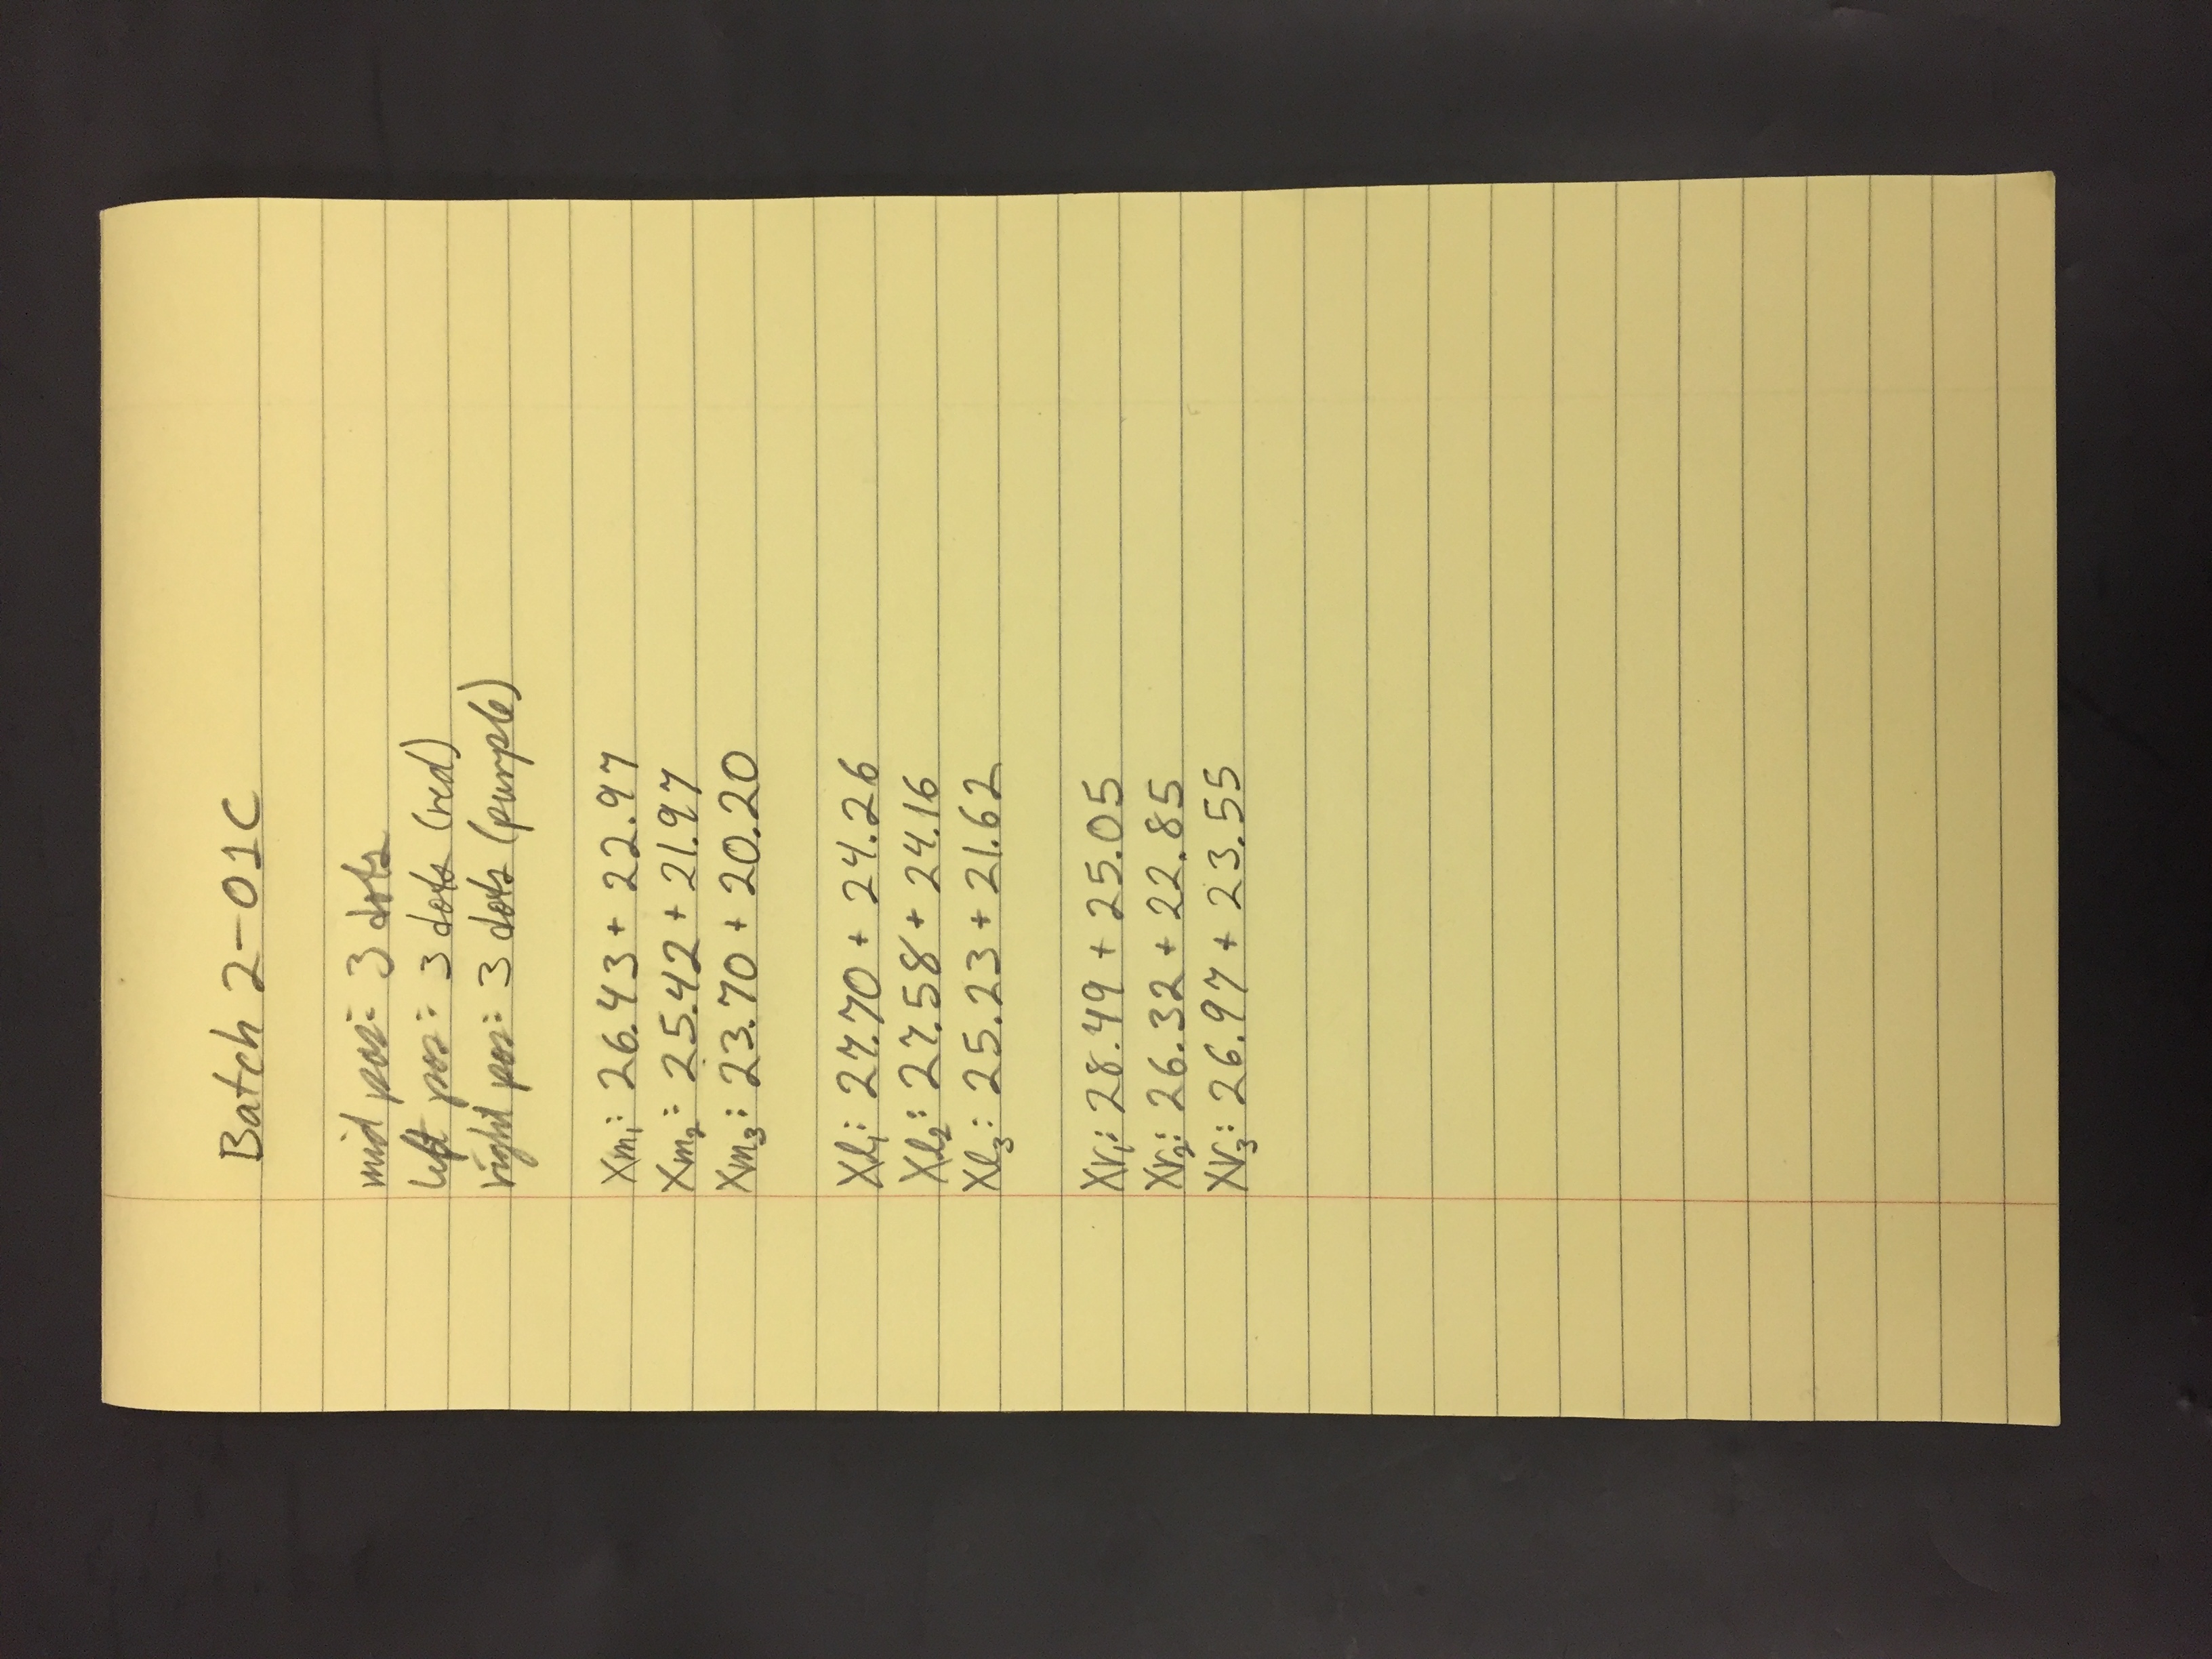 Batch 2-01C
mid pos: 3 dots
left pos: 3 dots (red)
right pos: 3 dots (purple)
Xm₁: 26.43 + 22.97
Xm₂: 25.42 + 21.97
Xm₃: 23.70 + 20.20
Xl₁: 27.70 + 24.26
Xl₂: 27.58 + 24.16
Xl₃: 25.23 + 21.62
Xr₁: 28.49 + 25.05
Xr₂: 26.32 + 22.85
Xr₃: 26.97 + 23.55